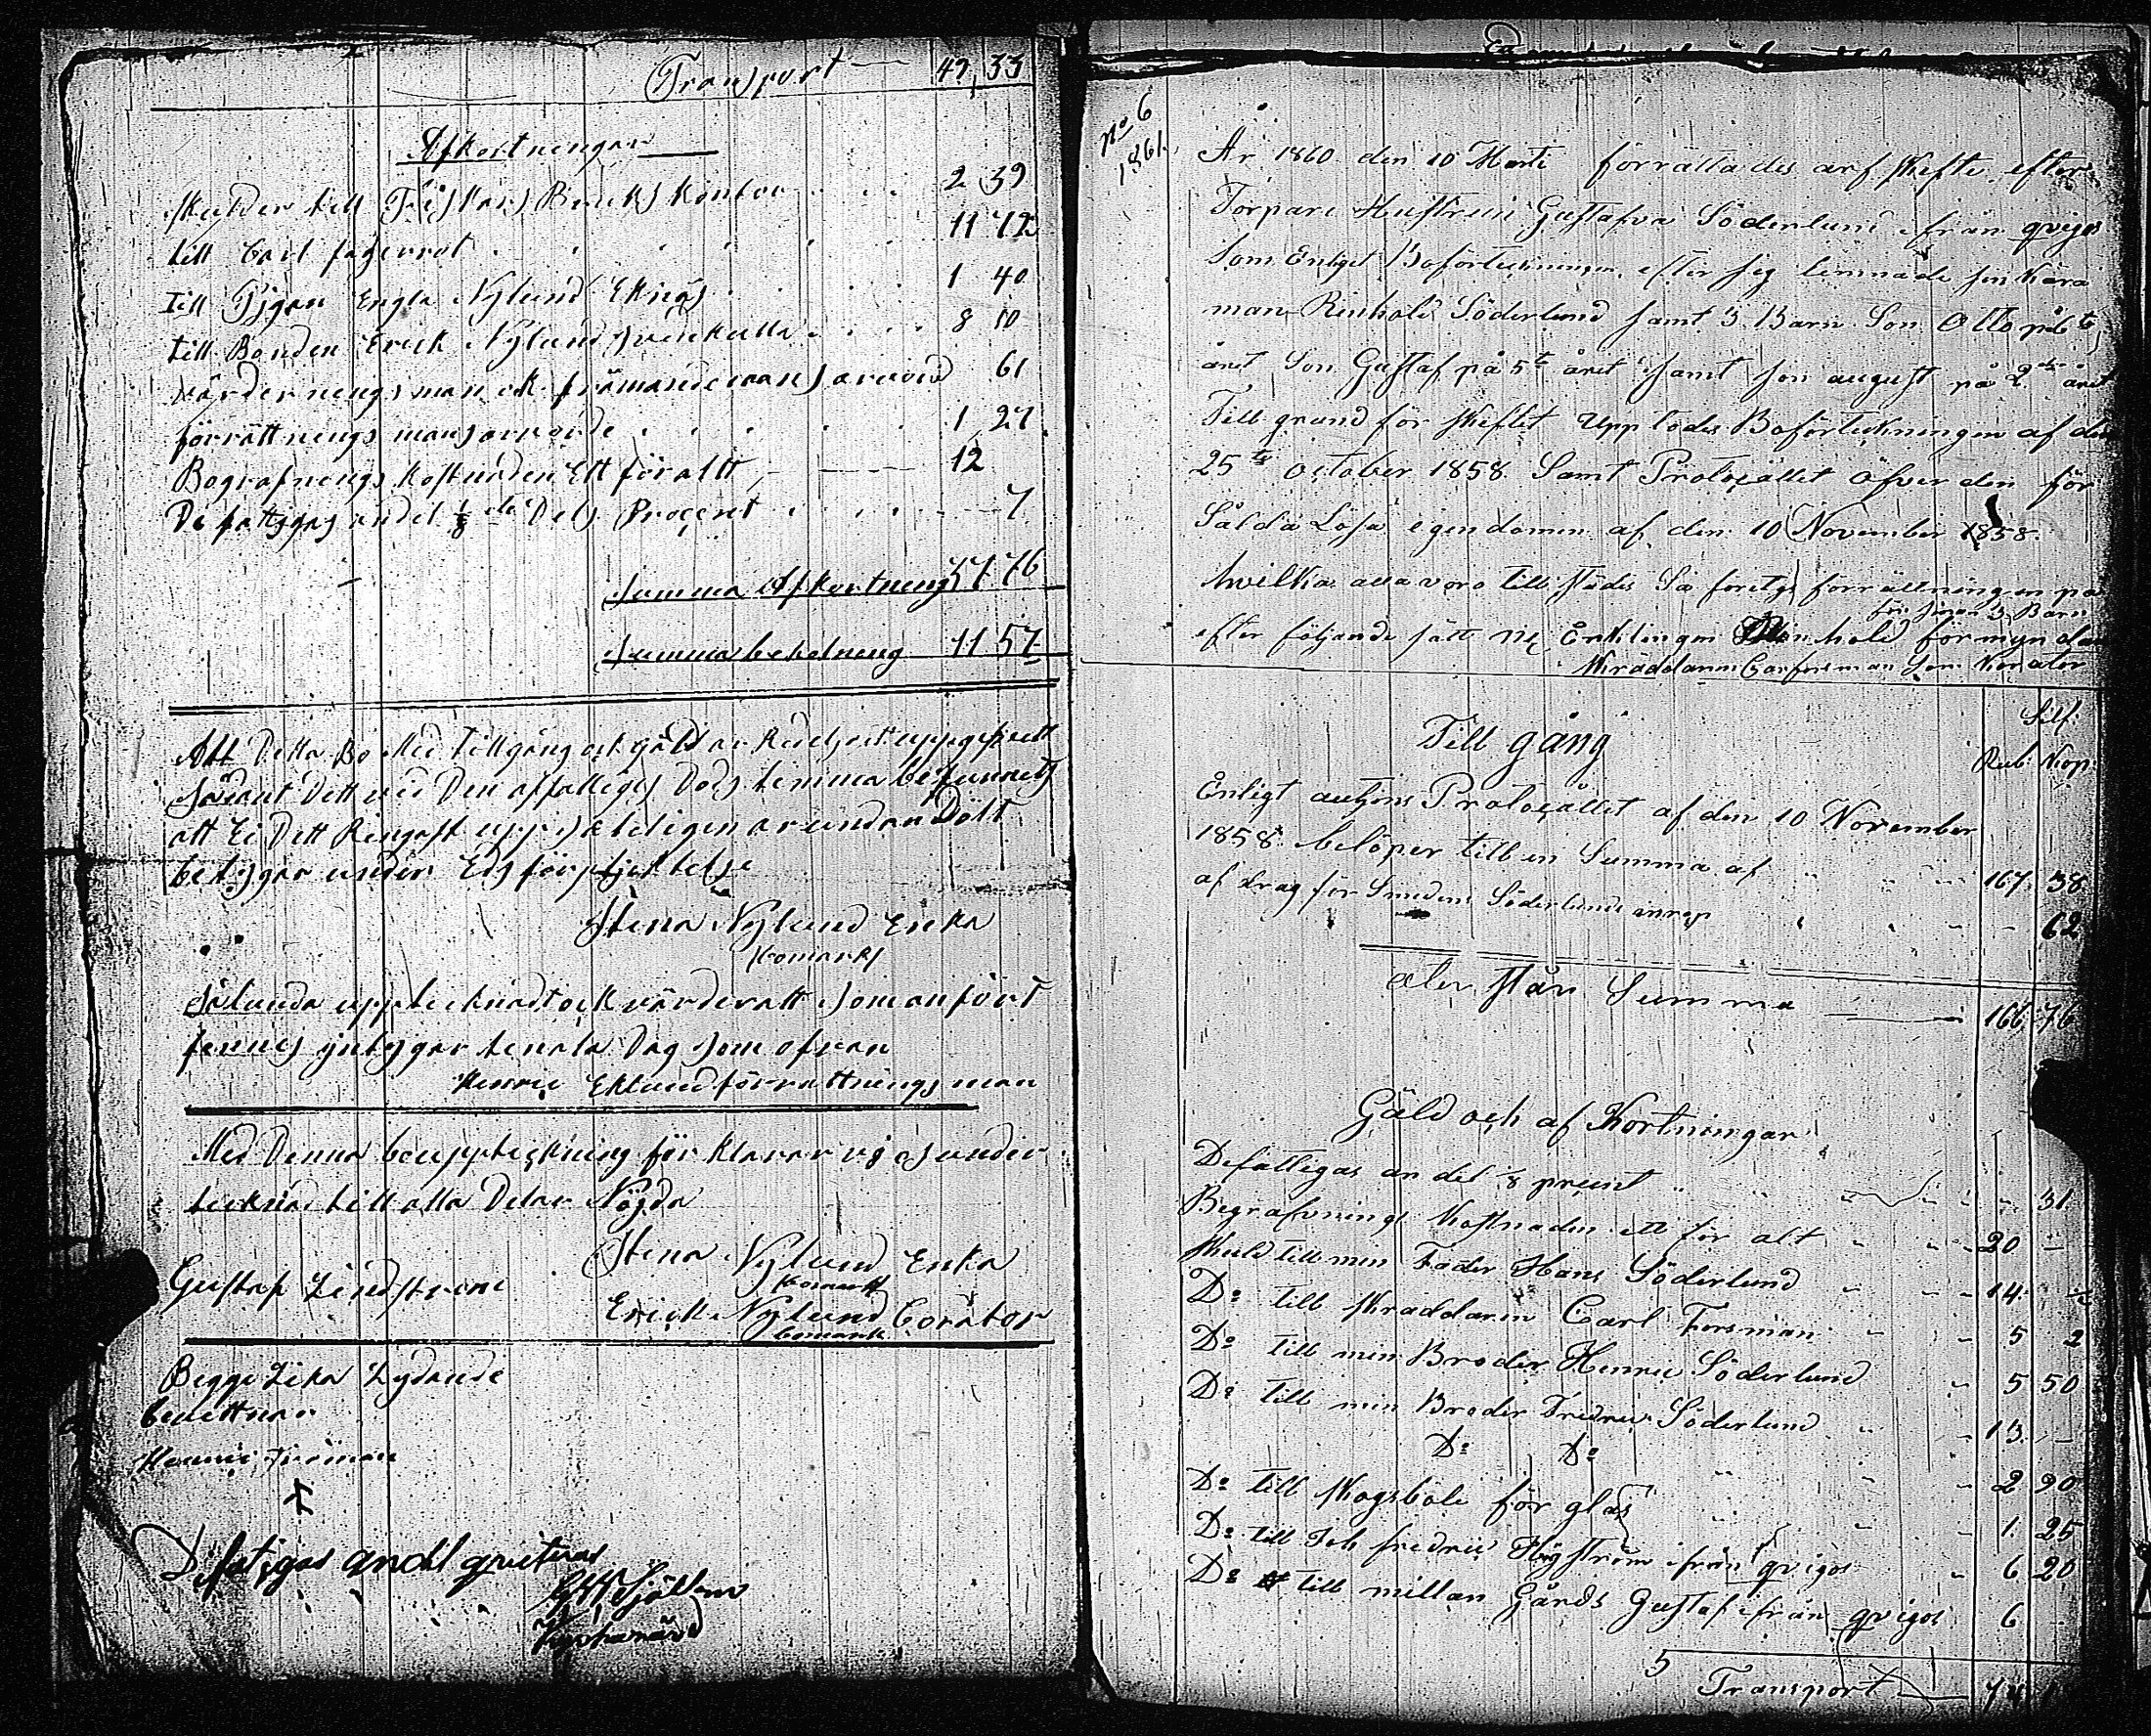 Transport — 49,33
Afkortningar
skulder till Fiskars Bruks Kontor . . . 2 39
till Carl fagerrot . . . . . 11 72
till Pigan Engla Nylund Eknäs . . . 1 40
till Bonden Erick Nylund . . . . 8 10
värdernengs man ock arvord 61
förrättnengs mans arvorde . . . . 1,27
Begrafnengs kostnden Ett för altt — 12
De fattigas andel 1/8 de Dels Procent . . . . 7
Summa Afkortneng 37 76
Summa beholneng 11 57
Att Detta Bo Med tillgång ock gäld är Redeligt uppgifvett
Sådant Dett vid Den Döds temma befunnets
att Ei Dett Ringast undan Dölt
betygar under Eds förpliktelse
Stina Nylund Enka
bomark
Sålunda upptecknadt ock värderatt som anfört
finnes intygar Dag som ofvan
Henric Eklund förrattnings man
Med Denna bouppteckning för klarar vi os under
tecknad till alla Delar Nöjda
Stina Nylund Enka
bomark
Gustaf Lindstrom
Erick Nylund Corator
bomark
Begge Lika Lydande
bevittnar
Henric
Defatigas andel qvitteras

No 6
1861.
År 1860 den 10 Marti förrättades arf skefte efter
Torpare Hustrun Gustafva Söderlund ifrån qvigos
Som Enligt Boförteckningen efter sig lemnade sin Kära
man Rinhold Söderlund samt 3 Barn Son Otto på 6te
året Son Gustaf på 5te året samt son august på 2dra året
Till grund för skeftet Upp lades Boförteckningen af den
25te october 1858 Samt Protocållet öfver den för
Sålda Lösa egendomen af den 10 November 1858.
hvilka alla voro till städes Så företogs förrättningen på
för sinna 3 Barn
efter följande sätt Nl Enklingen Rinhold förmyndare
Skräddaren Carl forsman som Korator
Till gång
Silf:
Rub. Kop.
Enligt auctions Protocållet af den 10 November
1858 belöper till en Summa af 167 38
af drag för Smeden Söderlunds inrop — 62
åter står Summa — 166 76
Gäld och af Kortningar
Defattigas an del 1/8 precent 31
Begrafnings Kostnaden ett för alt 20 —
Skuld till min Fader Hans Söderlund 14
Do till Skräddaren Carl Forsman 5 2
Do till min Broder Henric Söderlund 5 50
Do till min Broder Fredric Söderlund 13. —
Do Do
Do till Skogsböle för glas 2 90
Do till Joh fredric Högström ifrån qvigos 1. 25
Do till millan Gårds Gustaf ifrån qvigos 6 20
6
5
Transport — 74